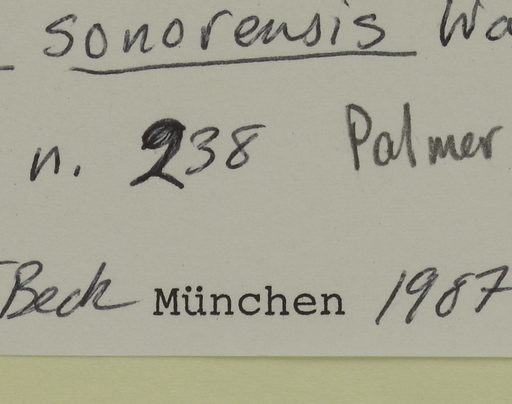 sonorensis Wa
n. 238 Palmer
Beck München 1987